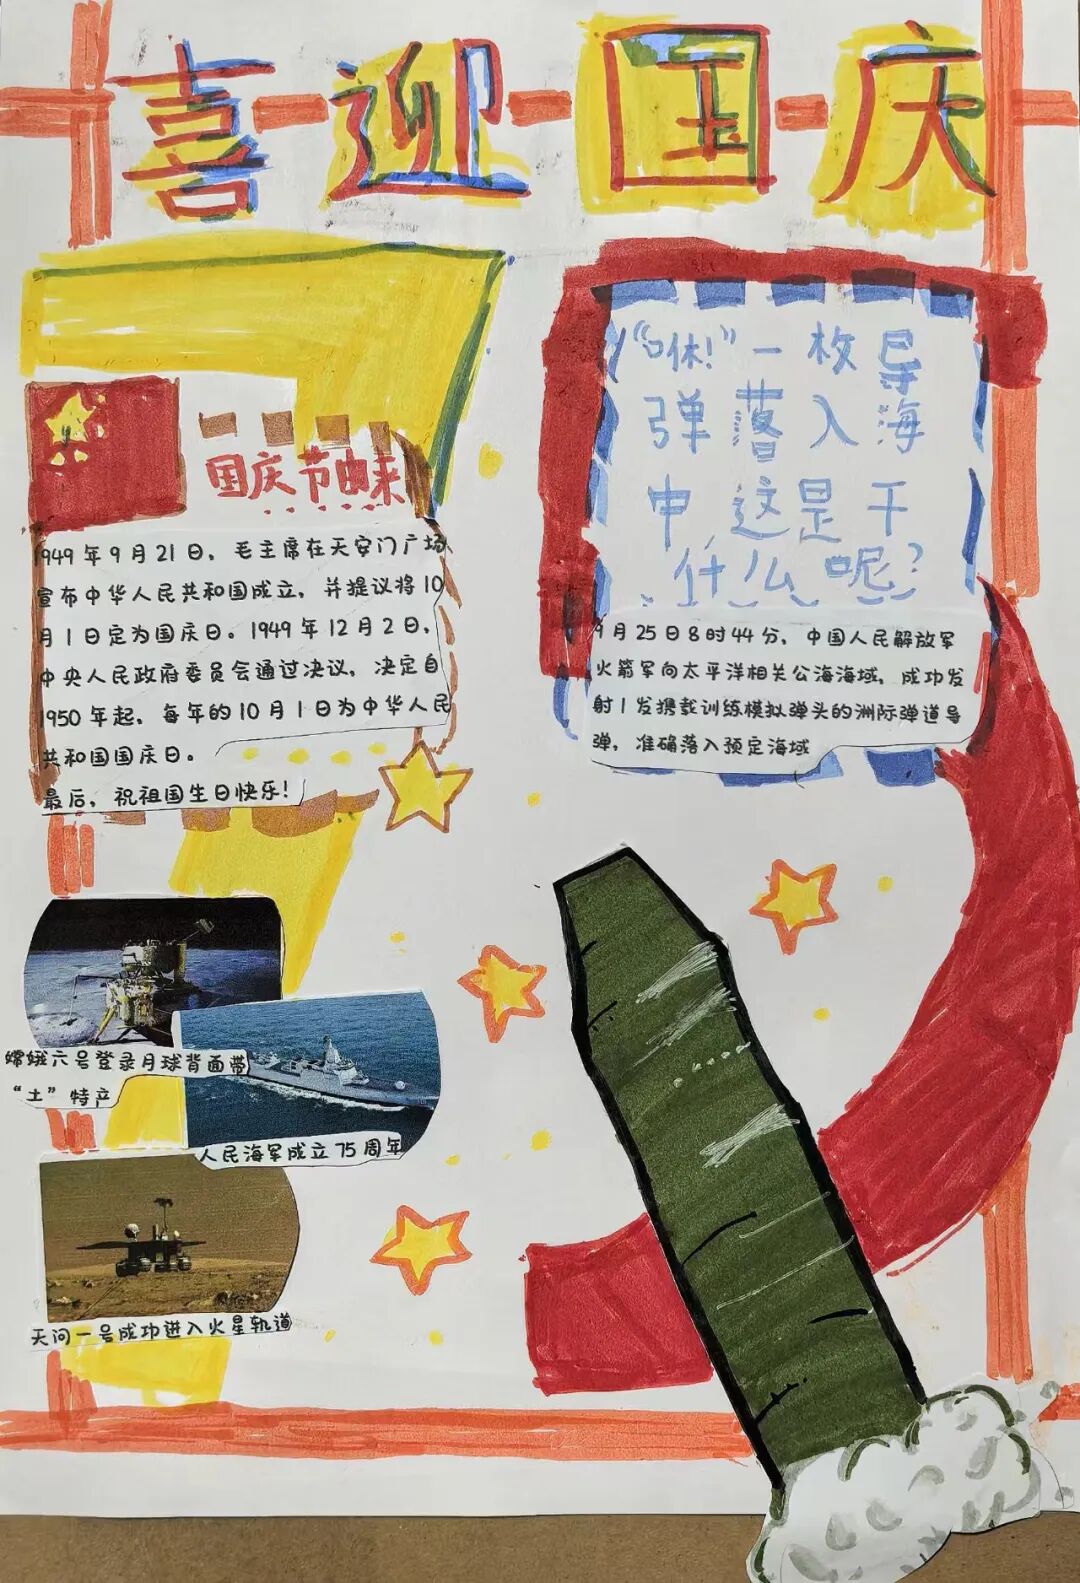 喜迎国庆
国庆节由来
1949年9月21日，毛主席在天安门广场
宣布中华人民共和国成立，并提议将10
月1日定为国庆日。1949年12月2日，
中央人民政府委员会通过决议，决定自
1950年起，每年的10月1日为中华人民
共和国国庆日。
最后，祝祖国生日快乐！
“咻！”一枚导
弹落入海
中，这是干
什么呢？
9月25日8时44分，中国人民解放军
火箭军向太平洋相关公海海域，成功发
射1发携载训练模拟弹头的洲际弹道导
弹，准确落入预定海域
嫦娥六号登录月球背面带
“土”特产
人民海军成立75周年
天问一号成功进入火星轨道